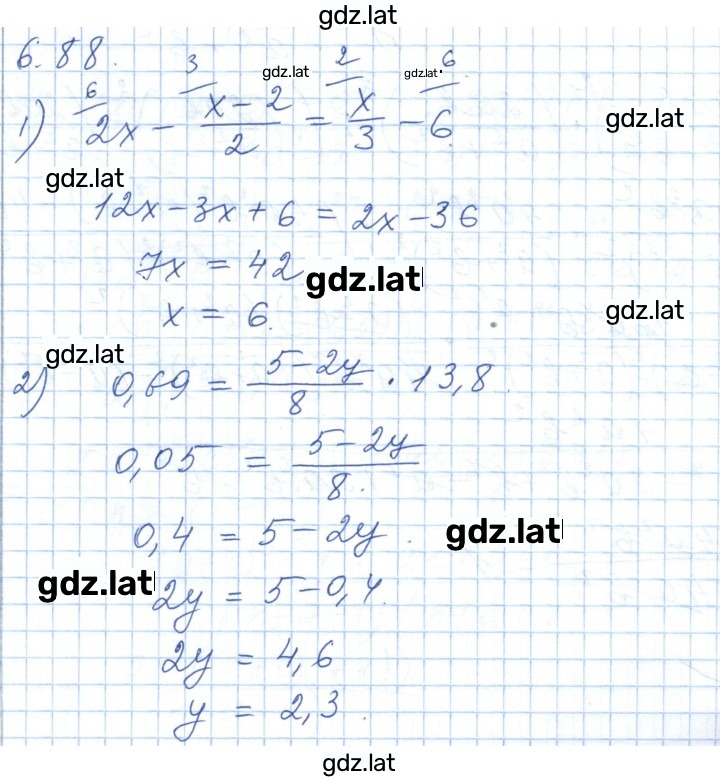 gdz.lat
6.88.
6 3 gdz.lat 2 gdz.lat 6
1) 2x − (x−2)/2 = x/3 − 6 gdz.lat
gdz.lat
12x−3x+6 = 2x−36
7x = −42 gdz.lat
x = 6. gdz.lat
gdz.lat
2) 0,69 = (5−2y)/8 · 13,8.
0,05 = (5−2y)/8.
0,4 = 5−2y. gdz.lat
gdz.lat
2y = 5−0,4.
2y = 4,6
y = 2,3.
gdz.lat